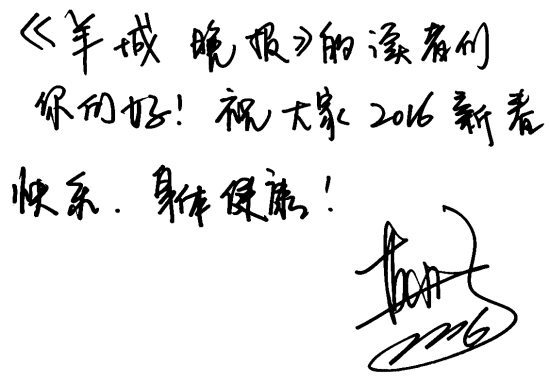 《羊城晚报》的读者们
你们好！祝大家2016新春
快乐．身体健康！
2016